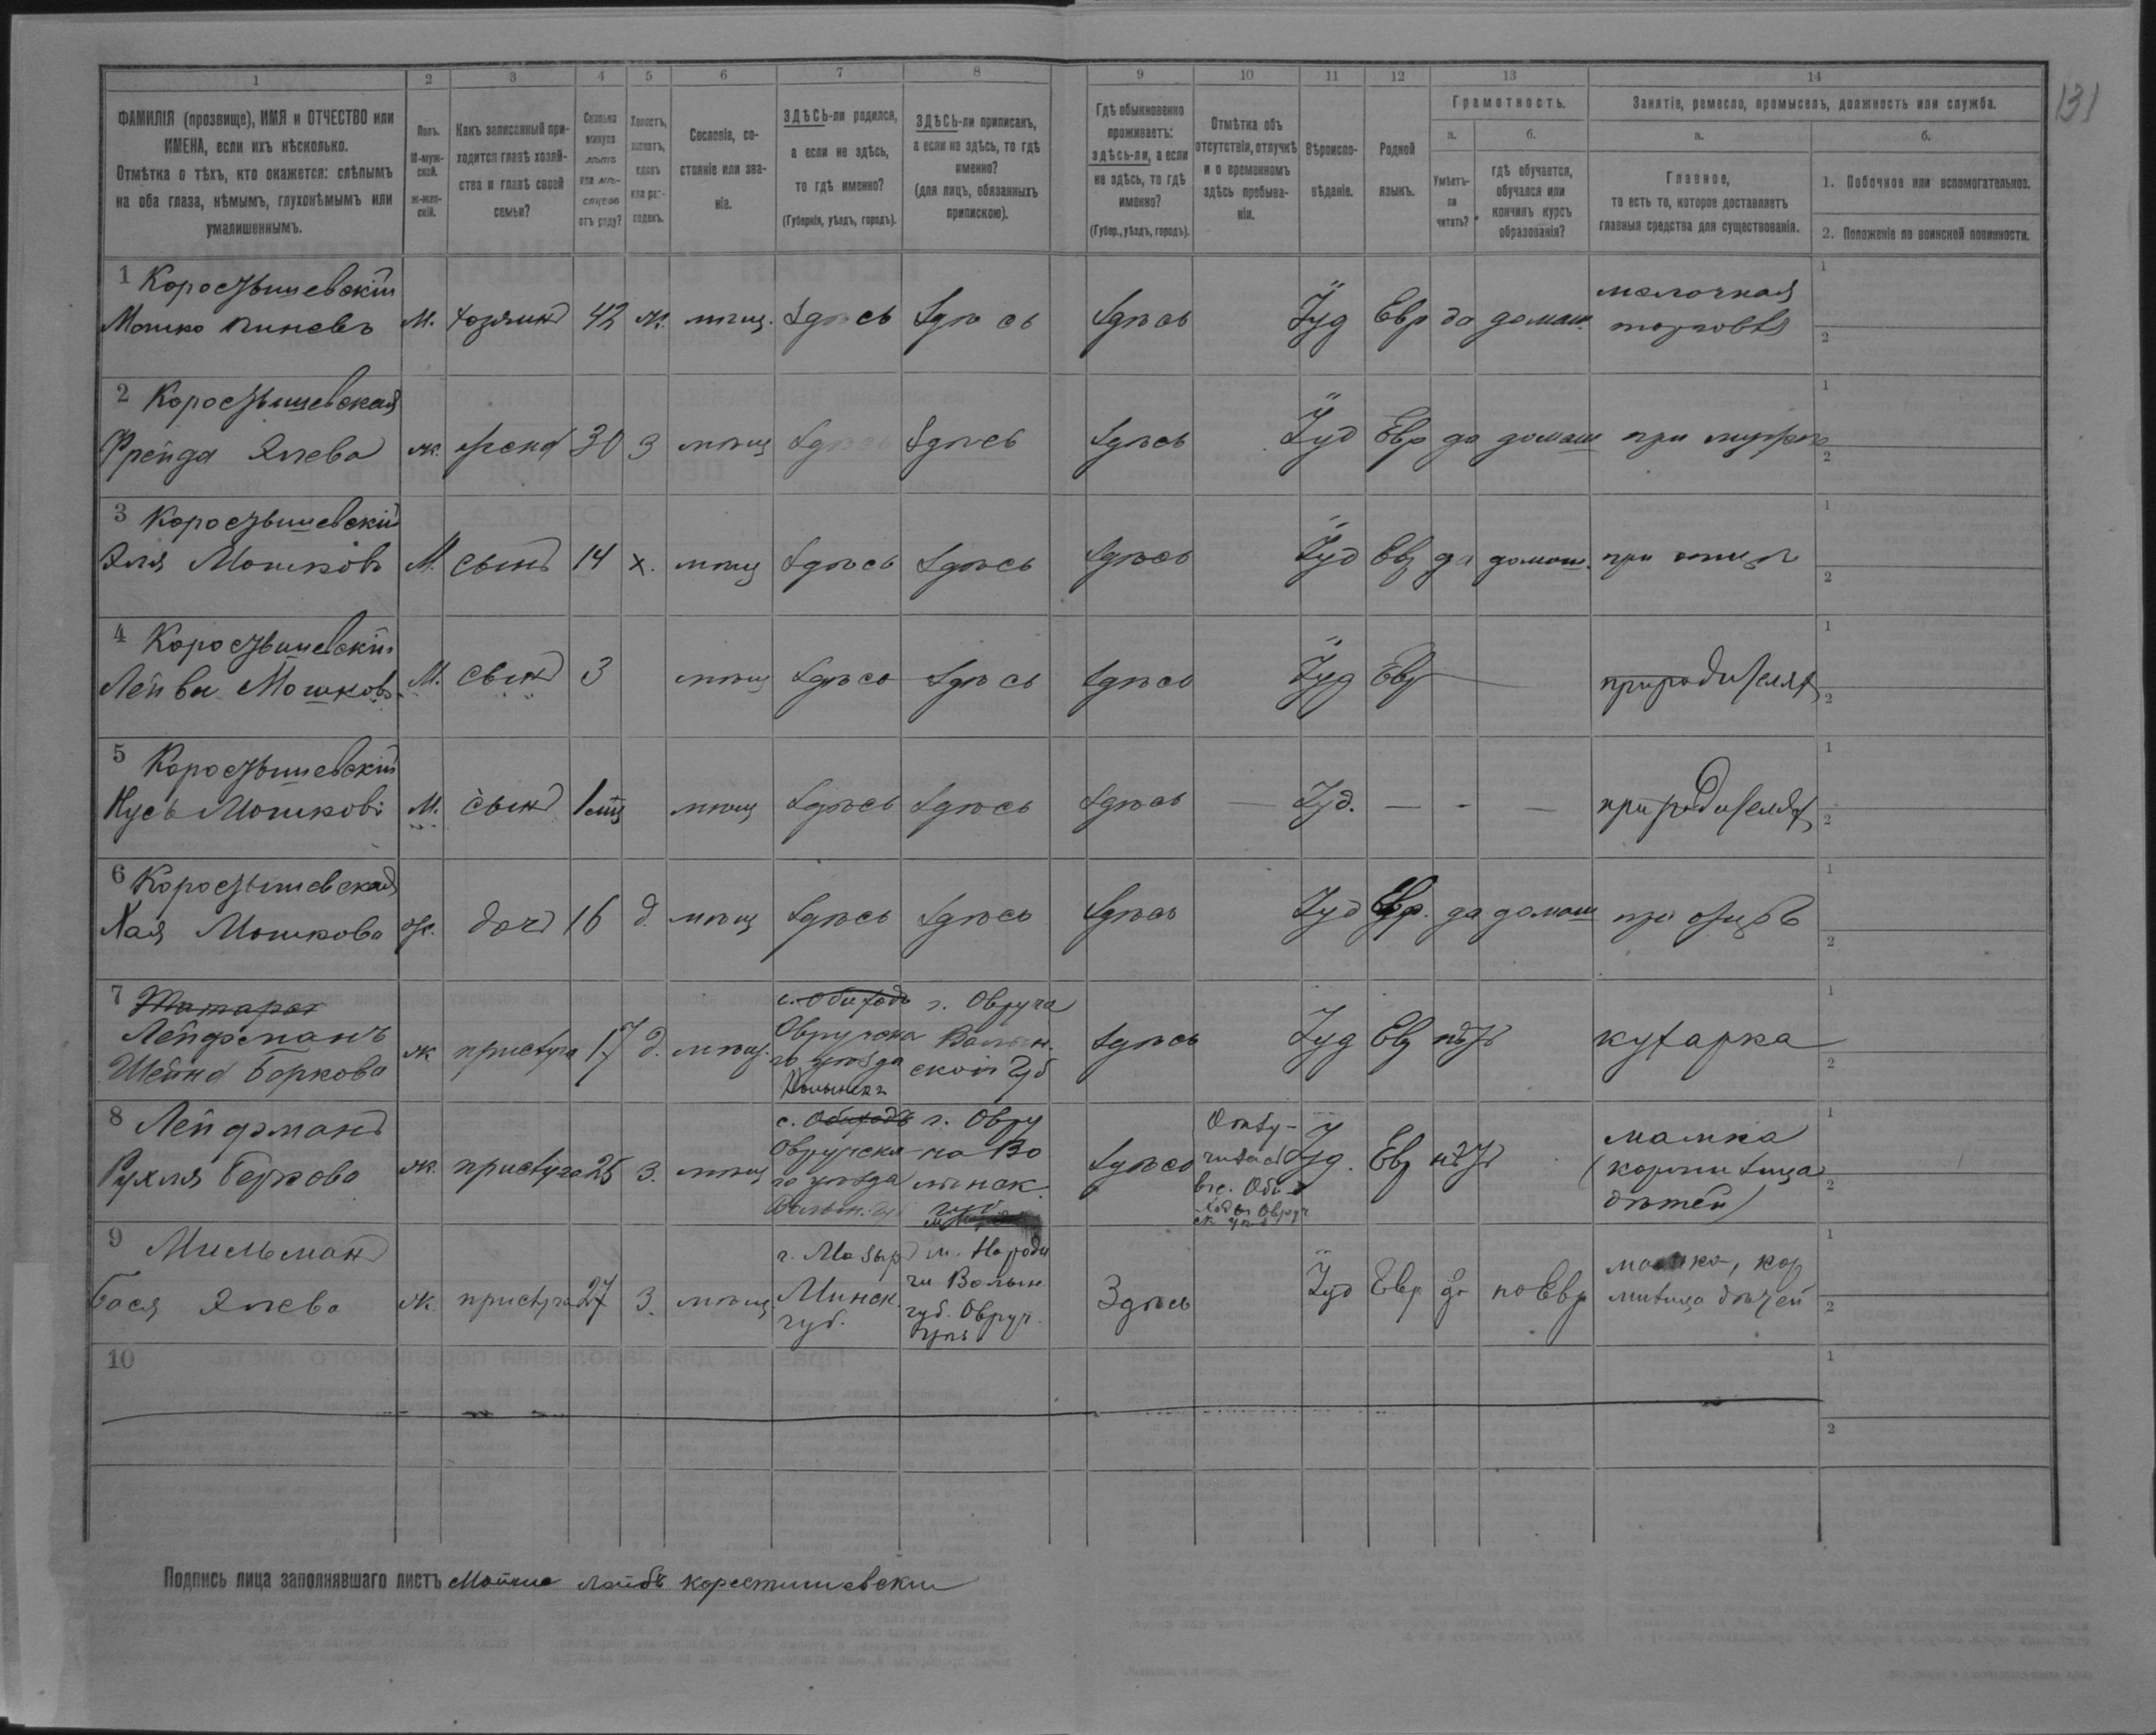 131
1 2 3 4 5 6 7 8 9 10 11 12 13 14
ФАМИЛІЯ (прозвище), ИМЯ и ОТЧЕСТВО или
ИМЕНА, если ихъ нѣсколько.
Отмѣтка о тѣхъ, кто окажется: слѣпымъ
на оба глаза, нѣмымъ, глухонѣмымъ или
умалишеннымъ.
Полъ.
М-муж-
ской.
Ж-жен-
скій.
Какъ записанный при-
ходится главѣ хозяй-
ства и главѣ своей
семьи?
Сколько
минуло
лѣтъ
или мѣ-
сяцевъ
отъ роду?
Холостъ,
женатъ,
вдовъ
или раз-
веденъ.
Сословіе, со-
стояніе или зва-
ніе.
ЗДѢСЬ-ли родился,
а если не здѣсь,
то гдѣ именно?
(Губернія, уѣздъ, городъ).
ЗДѢСЬ-ли приписанъ,
а если не здѣсь, то гдѣ
именно?
(для лицъ, обязанныхъ
припискою).
Гдѣ обыкновенно
проживаетъ:
здѣсь-ли, а если
не здѣсь, то гдѣ
именно?
(Губер., уѣздъ, городъ).
Отмѣтка объ
отсутствіи, отлучкѣ
и о временномъ
здѣсь пребыва-
ніи.
Вѣроиспо-
вѣданіе.
Родной
языкъ.
Грамотность.
а.
Умѣетъ-
ли
читать?
б.
гдѣ обучается,
обучался или
кончилъ курсъ
образованія?
Занятіе, ремесло, промыселъ, должность или служба.
а.
Главное,
то есть то, которое доставляетъ
главныя средства для существованія.
б.
1. Побочное или вспомогательное.
2. Положеніе по воинской повинности.
1 Коростышевскій
Мошко Пиневъ М. хозяинъ 42 ж. мѣщ. Здѣсь Здѣсь Здѣсь Іуд Евр да домаш. мелочная
торговля
1
2
2 Коростышевская
Фрейда Элева ж. жена 30 З мѣщ Здѣсь Здѣсь Здѣсь Іуд Евр да домаш при мужѣ
1
2
3 Коростышевскій
Эля Мошковъ М. сынъ 14 х. мѣщ Здѣсь Здѣсь Здѣсь Іуд Евр да домаш. при отцѣ
1
2
4 Коростышевскій
Лейба Мошковъ М. сынъ 3 мѣщ Здѣсь Здѣсь Здѣсь Іуд Евр — при родителях
1
2
5 Коростышевскій
Нусь Мошковъ М. сынъ 1 мѣщ Здѣсь Здѣсь Здѣсь — Іуд. — - — при родителях
1
2
6 Коростышевская
Хая Мошкова ж. дочь 16 д. мѣщ Здѣсь Здѣсь Здѣсь Іуд Евр. да домаш при отцѣ
1
2
7
Лейфманъ
Шейна Боркова ж прислуга 17 д. мѣщ.
с. Обиходъ
Овручска
го уѣзда
Волынск
г. Овруча
Волын.
ской Губ
Здѣсь Іуд Евр нѣтъ кухарка
1
2
8 Лейфманъ
Рухля Беркова ж. прислуга 25 З. мѣщ
с. Обиходъ
Овручска
го уѣзда
Волын. Гу
г. Овру
ча Во
лынск.
губ
Здѣсь
Отлу-
чилась
въ с. Оби-
ходы Овруч
Іуд. Евр нѣтъ
мамка
(кормилица
дѣтей)
1
2
9 Мильманъ
Бася Элева ж. прислуга 27 З. мѣщ.
г. Мозырь
Минск.
губ.
м. Народи
чи Волын
губ. Овруч.
уѣз
Здѣсь Іуд Евр да по Евр
мамка, кор
милица дѣтей
1
2
10
1
2
Подпись лица заполнявшаго листъ Мошко Лейбъ Корестишевски